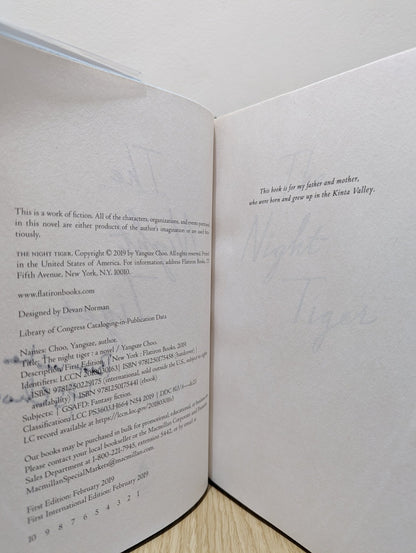 This is a work of fiction. All of the characters, organizations, and events portrayed
in this novel are either products of the author's imagination or are used ficti-
tiously.
THE NIGHT TIGER. Copyright © 2019 by Yangsze Choo. All rights reserved. Printed
in the United States of America. For information, address Flatiron Books, 175
Fifth Avenue, New York, N.Y. 10010.
www.flatironbooks.com
Designed by Devan Norman
Library of Congress Cataloging-in-Publication Data
Names: Choo, Yangsze, author.
Title: The night tiger : a novel / Yangsze Choo.
Description: First Edition. | New York : Flatiron Books, 2019.
Identifiers: LCCN 2018030163 | ISBN 9781250175458 (hardcover) |
ISBN 9781250229175 (international, sold outside the U.S., subject to rights
availability) | ISBN 9781250175441 (ebook)
Subjects: | GSAFD: Fantasy fiction.
Classification: LCC PS3603.H664 N54 2019 | DDC 813/.6—dc23
LC record available at https://lccn.loc.gov/2018030163
Our books may be purchased in bulk for promotional, educational, or business
Please contact your local bookseller or the Macmillan Corporate and Premium
Sales Department at 1-800-221-7945, extension 5442, or by email at
MacmillanSpecialMarkets@macmillan.com.
First Edition: February 2019
First International Edition: February 2019
10 9 8 7 6 5 4 3 2 1
This book is for my father and mother,
who were born and grew up in the Kinta Valley.
The
Night
Tiger